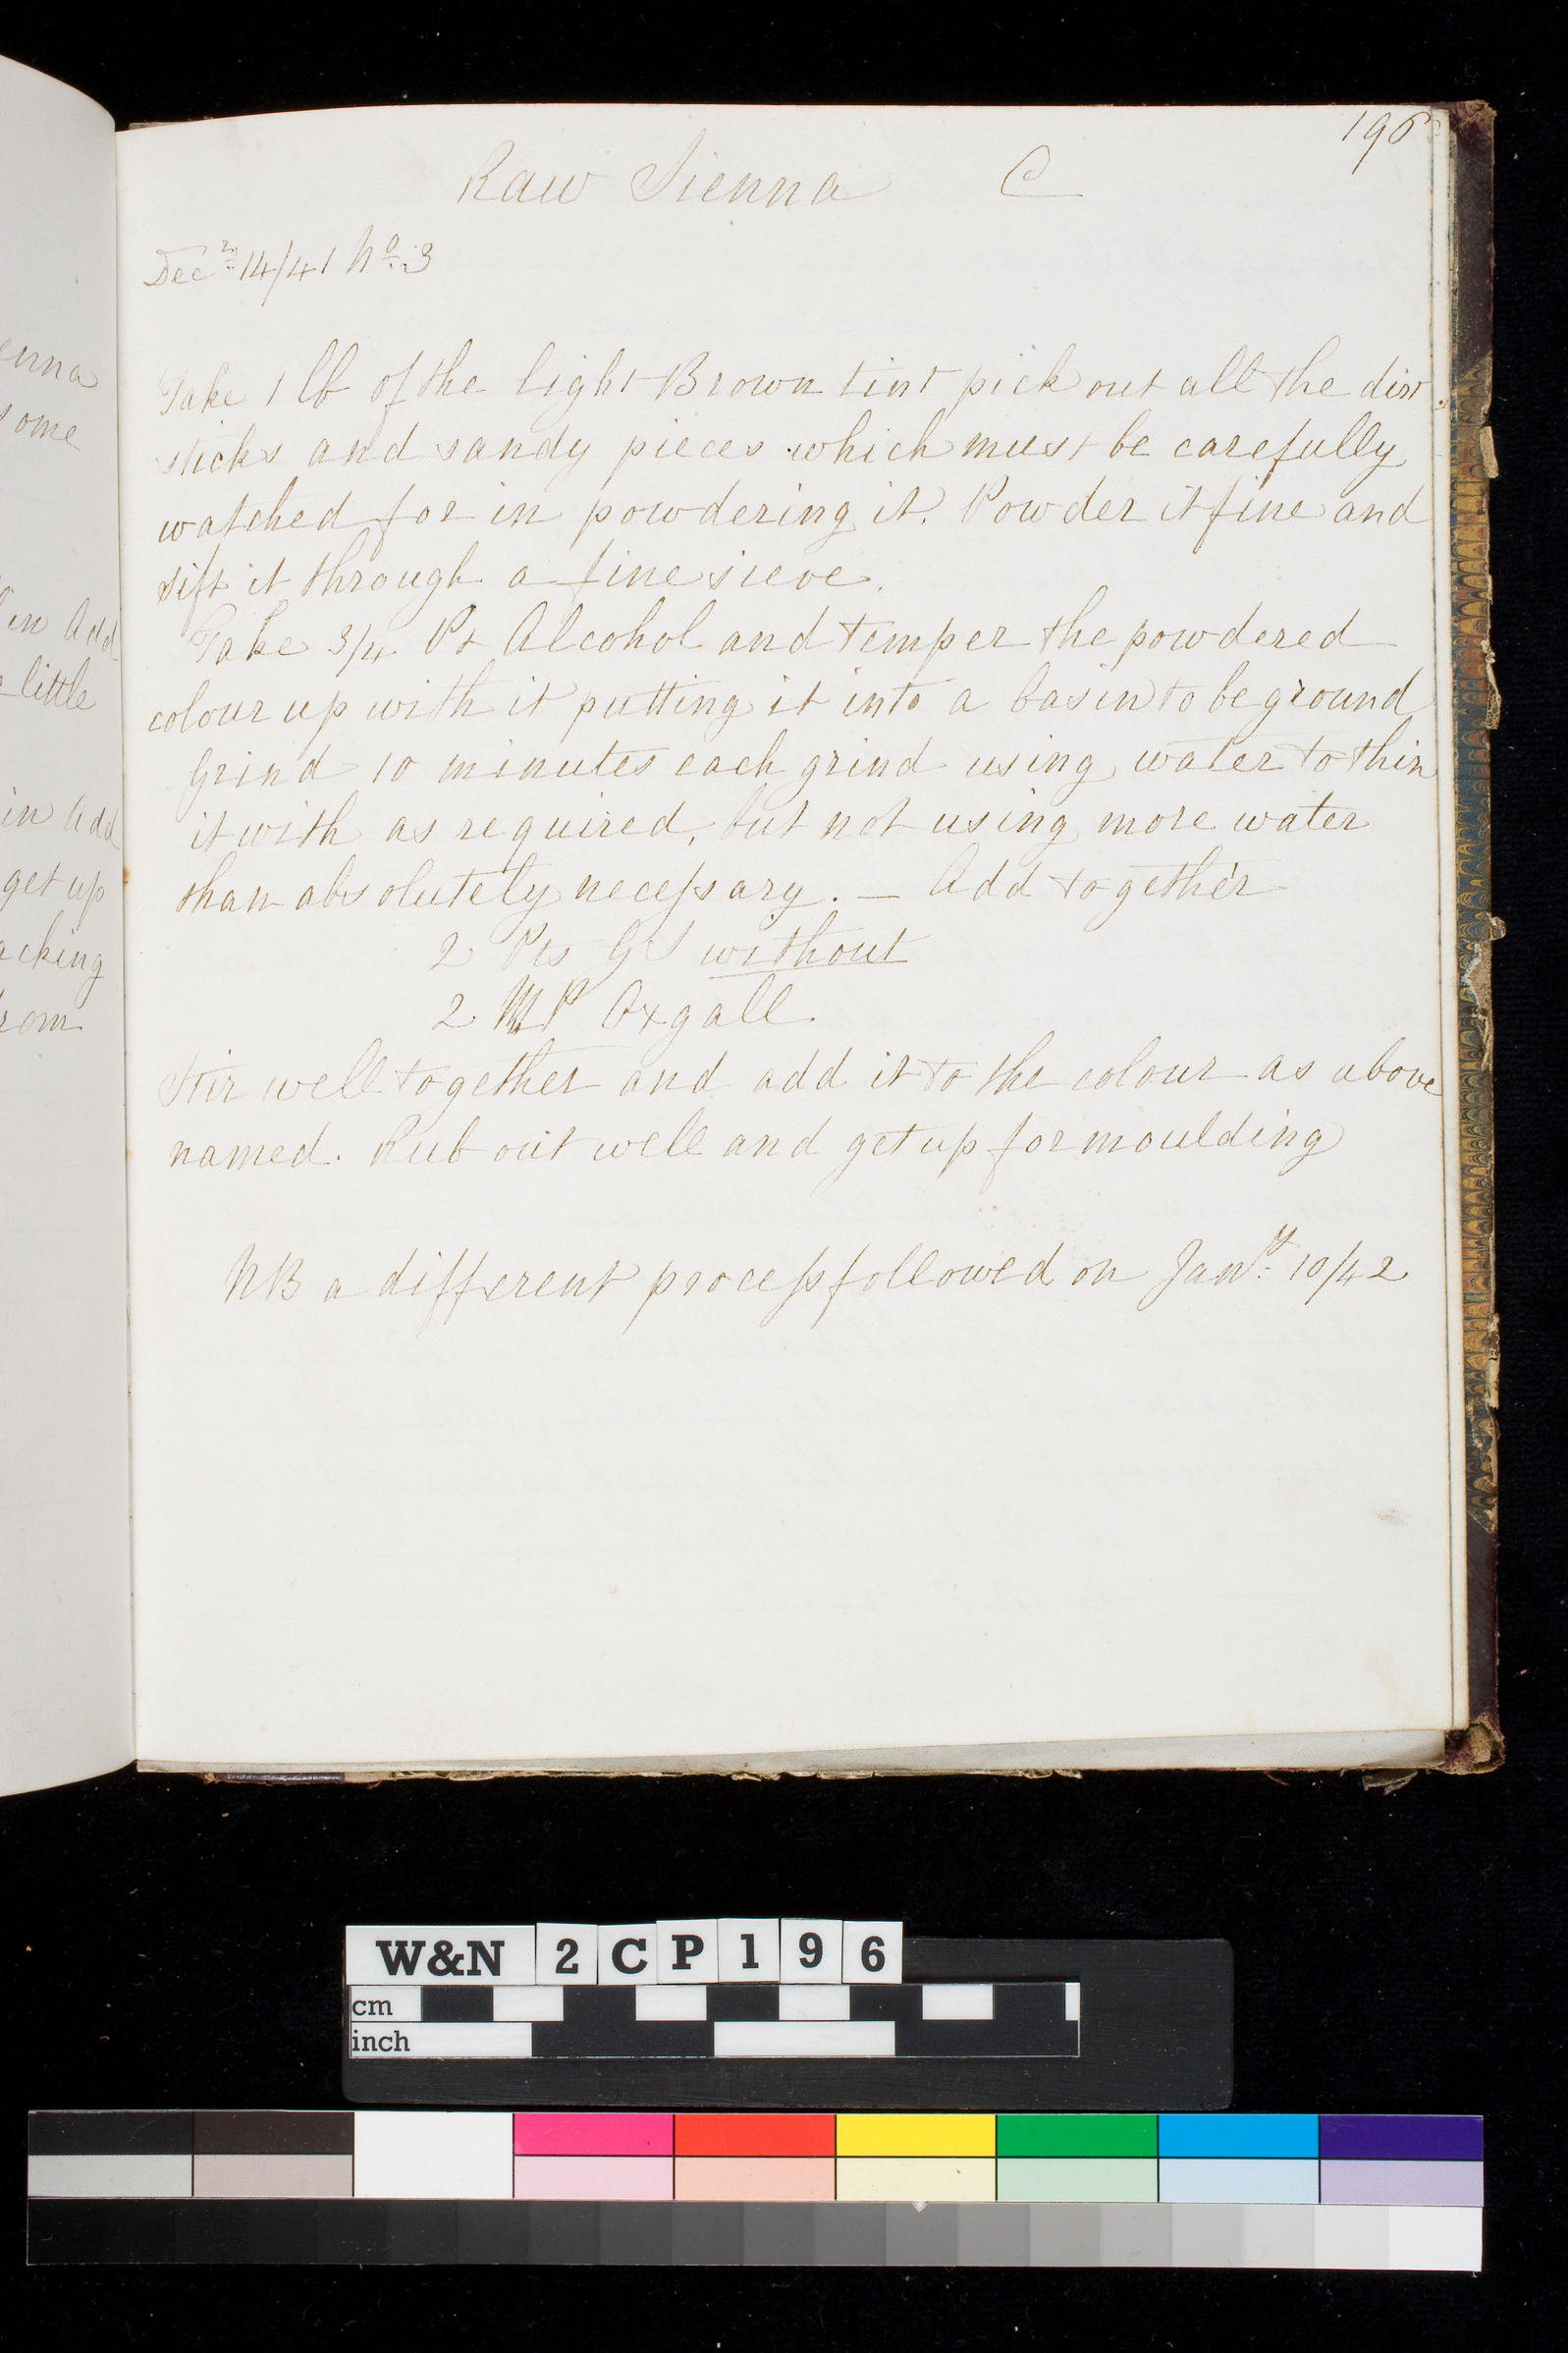 196
Raw Sienna C
Decr 14/41 No 3
Take 1 lb of the light Brown tint pick out all the dirt
sticks and sandy pieces which must be carefully
watched for in powdering it. Powder it fine and
sift it through a fine sieve.
Take 3/4 Pt Alcohol and temper the powdered
colour up with it putting it into a basin to be ground
Grind 10 minutes each grind using water to thin
it with as required, but not using more water
than absolutely necessary. — Add together
2 Pts GS without
2 MP Oxgall.
Stir well together and add it to the colour as above
named. Rub out well and get up for moulding
NB a different process followed on Jany 10/42
enna
some
in Add
little
in Add
get up
acking
rom
W&N 2 C P 1 9 6
cm
inch